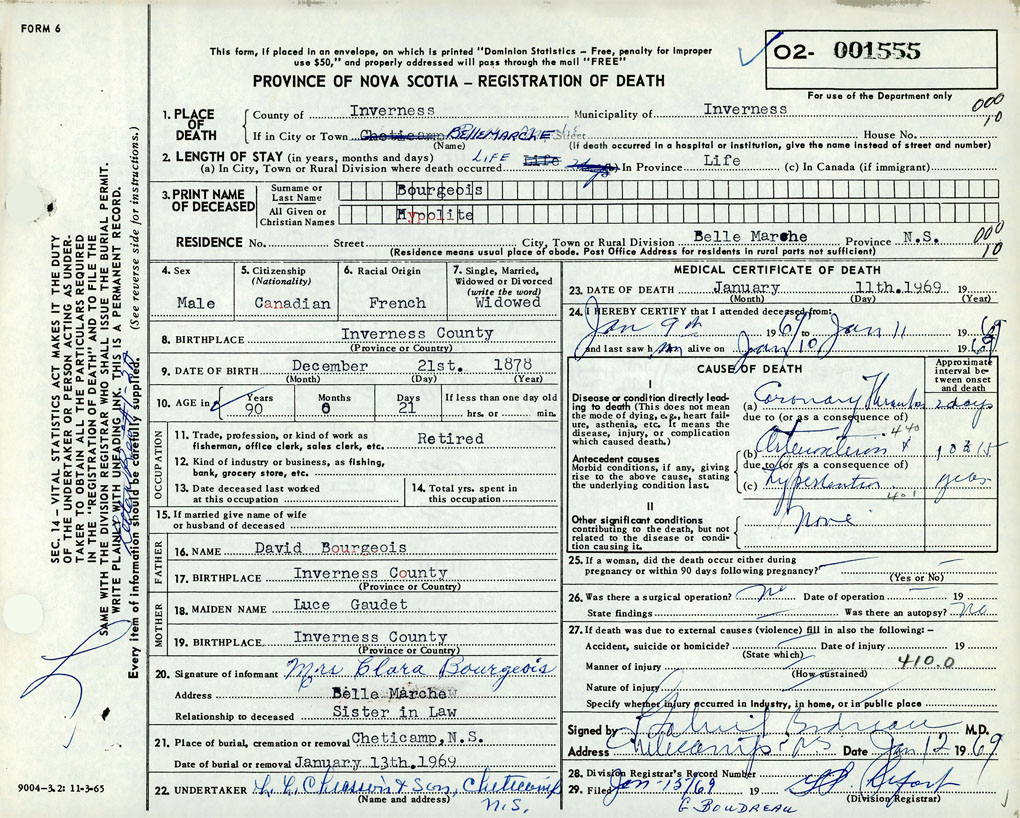 FORM 6
This form, if placed in an envelope, on which is printed "Dominion Statistics – Free, penalty for improper
use $50," and properly addressed will pass through the mail "FREE"
PROVINCE OF NOVA SCOTIA – REGISTRATION OF DEATH
02- 001555
For use of the Department only
000
10
1. PLACE OF DEATH
County of Inverness Municipality of Inverness
If in City or Town Cheticamp BELLEMARCHE Street House No.
(Name) (If death occurred in a hospital or institution, give the name instead of street and number)
2. LENGTH OF STAY (in years, months and days)
(a) In City, Town or Rural Division where death occurred LIFE Life (b) In Province Life (c) In Canada (if immigrant)
3. PRINT NAME OF DECEASED
Surname or Last Name Bourgeois
All Given or Christian Names Hypolite
RESIDENCE No. Street City, Town or Rural Division Belle Marche Province N.S.
000
10
(Residence means usual place of abode. Post Office Address for residents in rural parts not sufficient)
4. Sex
Male
5. Citizenship
(Nationality)
Canadian
6. Racial Origin
French
7. Single, Married,
Widowed or Divorced
(write the word)
Widowed
8. BIRTHPLACE Inverness County
(Province or Country)
9. DATE OF BIRTH December 21st. 1878
(Month) (Day) (Year)
10. AGE in
Years 90
Months 0
Days 21
If less than one day old
hrs. or min.
OCCUPATION
11. Trade, profession, or kind of work as
fisherman, office clerk, sales clerk, etc. Retired
12. Kind of industry or business, as fishing,
bank, grocery store, etc.
13. Date deceased last worked
at this occupation
14. Total yrs. spent in
this occupation
15. If married give name of wife
or husband of deceased
FATHER
16. NAME David Bourgeois
17. BIRTHPLACE Inverness County
(Province or Country)
MOTHER
18. MAIDEN NAME Luce Gaudet
19. BIRTHPLACE Inverness County
(Province or Country)
20. Signature of informant Mrs Clara Bourgeois
Address Belle Marche
Relationship to deceased Sister in Law
21. Place of burial, cremation or removal Cheticamp, N.S.
Date of burial or removal January 13th. 1969
22. UNDERTAKER L. L. Chiasson & Son, Cheticamp
(Name and address) N.S.
MEDICAL CERTIFICATE OF DEATH
23. DATE OF DEATH January 11th. 1969 19
(Month) (Day) (Year)
24. I HEREBY CERTIFY that I attended deceased from:
Jan 9th 1969 to Jan 11 1969
and last saw him alive on Jan 10 1969
CAUSE OF DEATH
Approximate
interval be-
tween onset
and death
I
Disease or condition directly lead-
ing to death (This does not mean
the mode of dying, e.g., heart fail-
ure, asthenia, etc. It means the
disease, injury, or complication
which caused death.)
(a) Coronary 2 days
due to (or as a consequence of)
440
Antecedent causes
Morbid conditions, if any, giving
rise to the above cause, stating
the underlying condition last.
(b) 10 15
due to (or as a consequence of)
(c) Hypertention years
401
II
Other significant conditions
contributing to the death, but not
related to the disease or condi-
tion causing it.
None
25. If a woman, did the death occur either during
pregnancy or within 90 days following pregnancy?
(Yes or No)
26. Was there a surgical operation? no Date of operation 19
State findings Was there an autopsy? no
27. If death was due to external causes (violence) fill in also the following: –
Accident, suicide or homicide? Date of injury 19
(State which)
Manner of injury 410.0
(How sustained)
Nature of injury
Specify whether injury occurred in industry, in home, or in public place
Signed by Gabriel Boudreau M.D.
Address Cheticamp NS Date Jan 12 1969
28. Division Registrar's Record Number
29. Filed Jan-15/69
(Division Registrar)
G. BOUDREAU
SEC. 14 – VITAL STATISTICS ACT MAKES IT THE DUTY
OF THE UNDERTAKER OR PERSON ACTING AS UNDER-
TAKER TO OBTAIN ALL THE PARTICULARS REQUIRED
IN THE "REGISTRATION OF DEATH" AND TO FILE THE
SAME WITH THE DIVISION REGISTRAR WHO SHALL ISSUE THE BURIAL PERMIT.
WRITE PLAINLY WITH UNFADING INK. THIS IS A PERMANENT RECORD.
Every item of information should be carefully supplied. (See reverse side for instructions.)
9004-3.2: 11-3-65